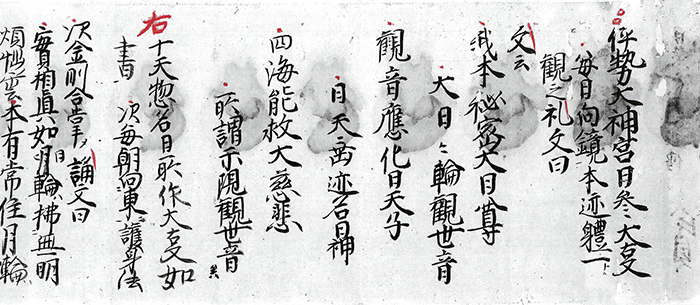 伊勢大神宮日参々大事
毎日向鏡本迹躰一ト
観之礼文曰
文云
我本秘密大日尊
大日々輪観世音
観音應化日天子
日天垂迹名日神
四海能救大慈悲
所謂示現観世音
右十天惣名日所作大事如
書 次毎朝向東護身法
次金剛合掌 誦文曰
實相真如日輪拂無明
煩悩 本有常住月輪